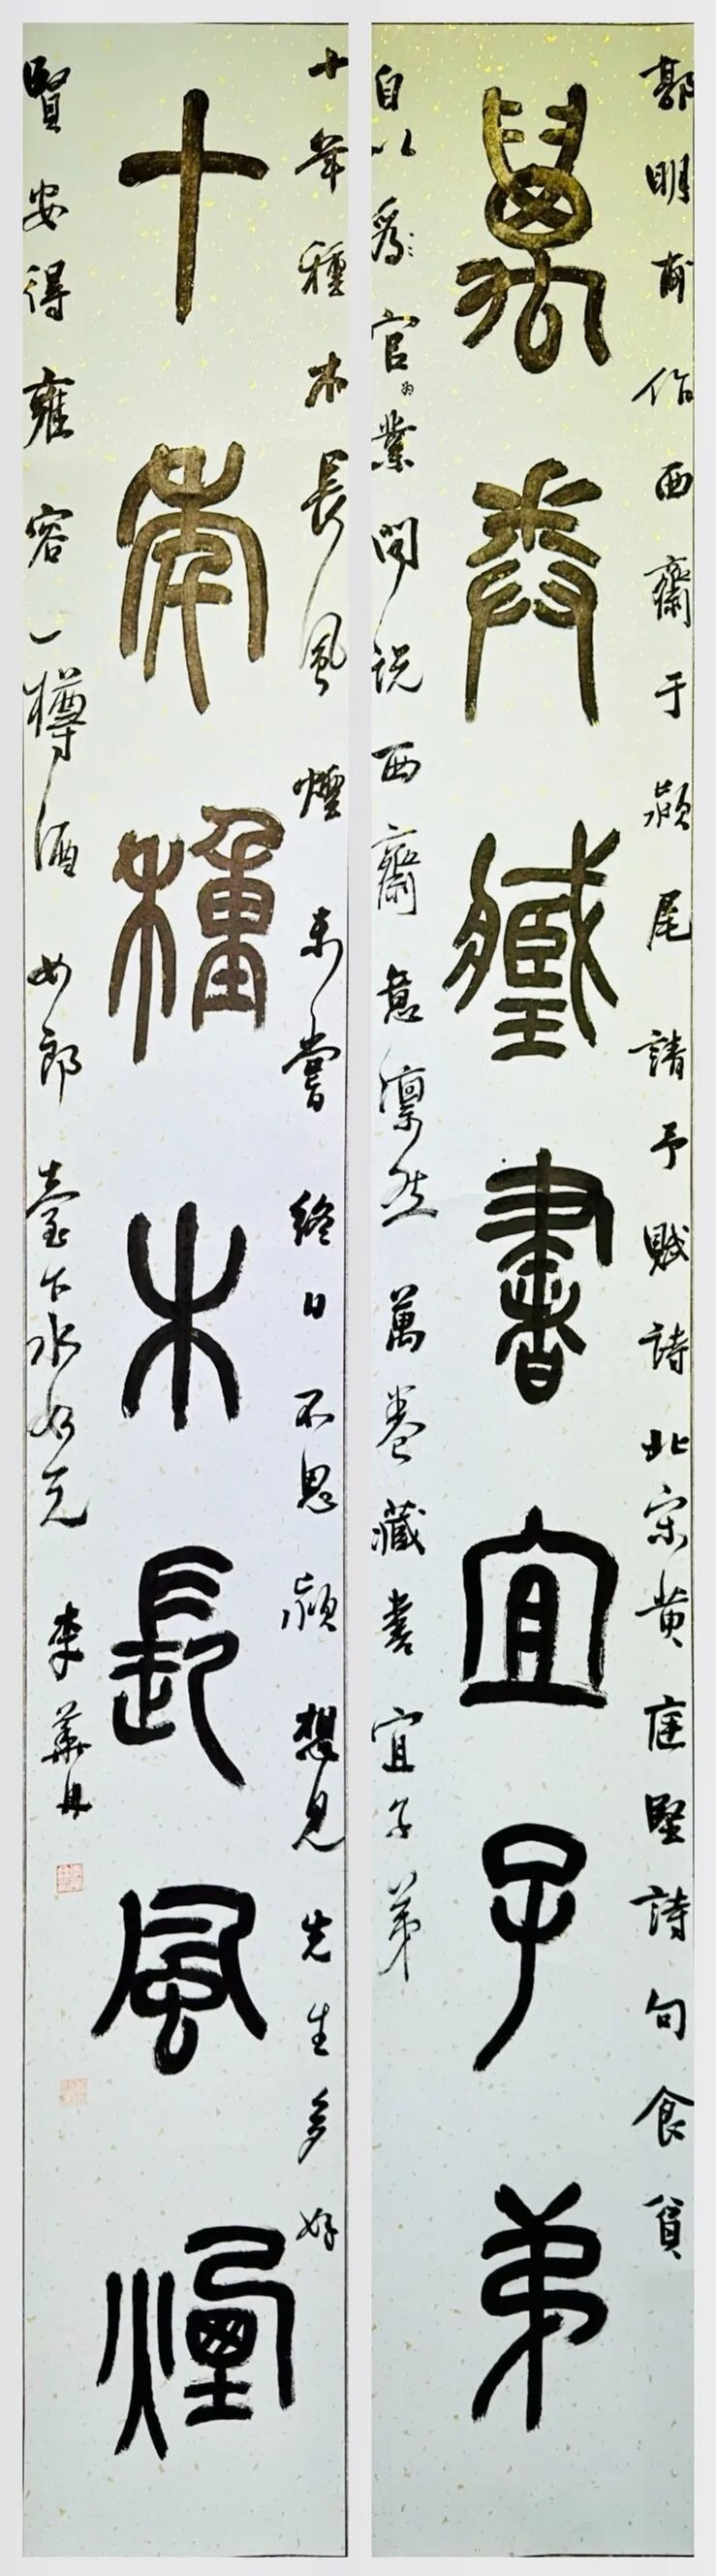 郭明甫作西齋于潁尾請予賦詩北宋黄庭堅詩句食貧
萬卷藏書宜子弟
自以爲官為業聞説西齋意凛然萬卷藏書宜子弟
十年種木長風煙未嘗終日不思潁想見先生多好
十年種木長風煙
賢安得雍容一樽酒女郎臺下水如天 李華